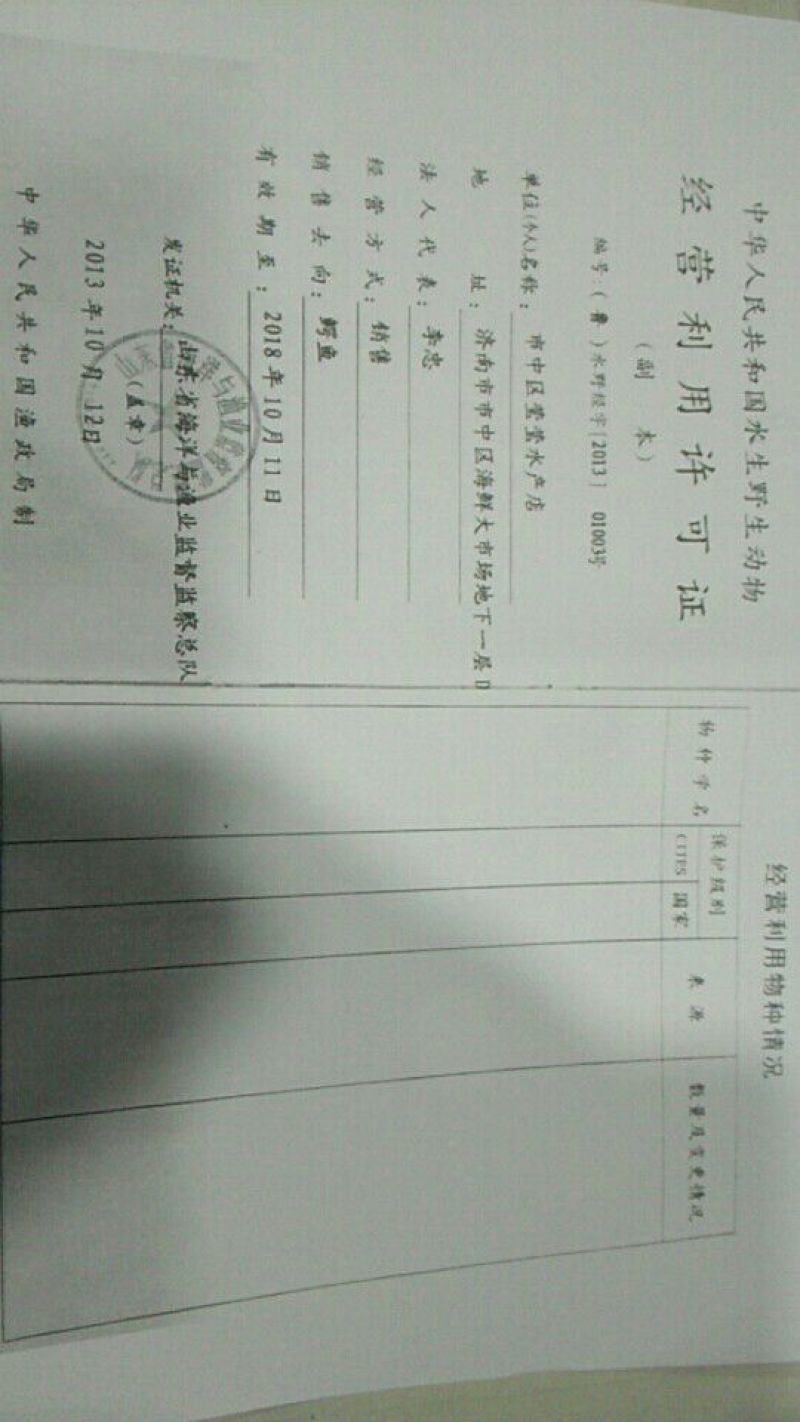 中华人民共和国水生野生动物
经营利用许可证
(副 本)
编号:(鲁)水野经字[2013] 01003号
单位(个人)名称: 市中区莹莹水产店
地 址: 济南市市中区海鲜大市场地下一层D
法人代表: 李忠
经营方式: 销售
销售去向: 鳄鱼
有效期至: 2018年10月11日
发证机关: 山东省海洋与渔业监督监察总队
(盖章)
2013年10月12日
中华人民共和国渔政局制
经营利用物种情况
物种学名 保护级别 来源 数量及变更情况
CITES 国家